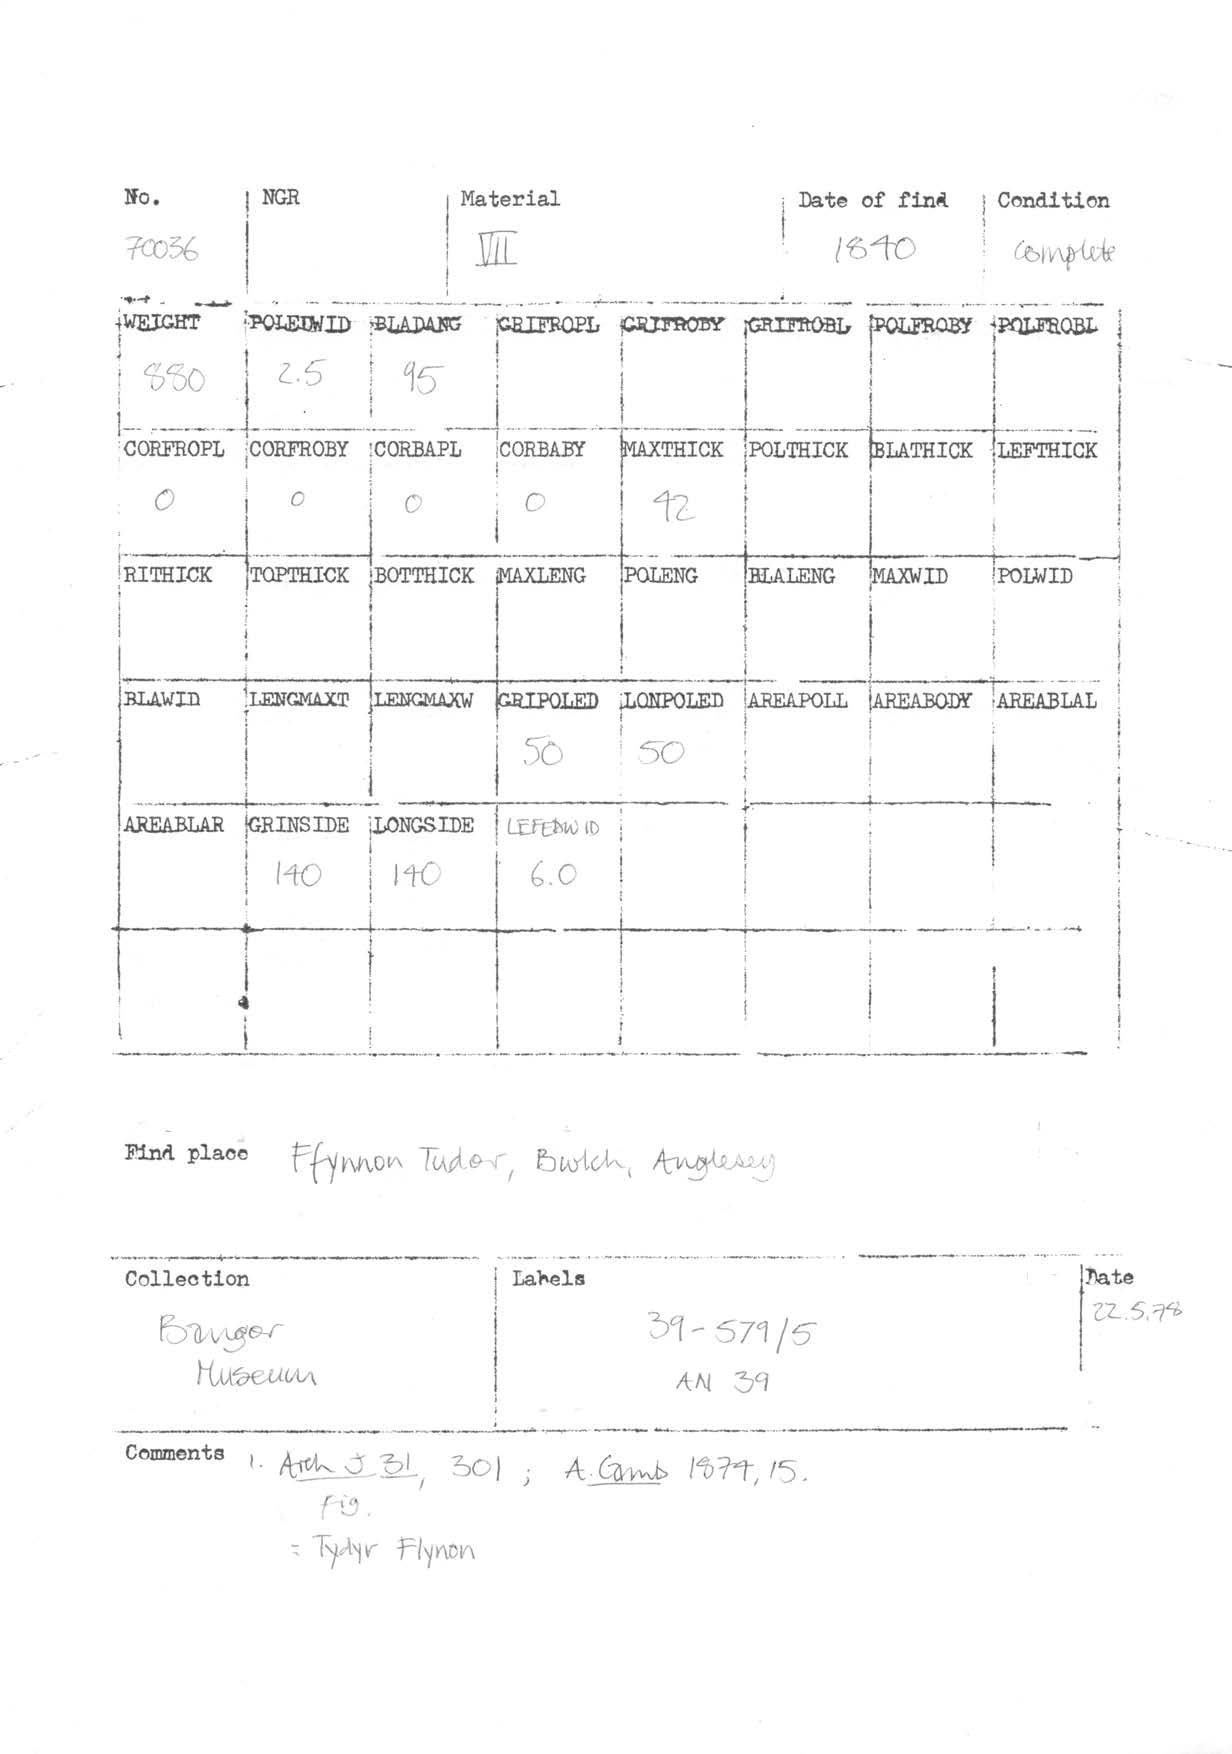 No. NGR Material Date of find Condition
70036 VII 1840 complete
WEIGHT POLEDWID BLADANG GRIFROPL GRIFROBY GRIFROBL POLFROBY POLFROBL
880 2.5 95
CORFROPL CORFROBY CORBAPL CORBABY MAXTHICK POLTHICK BLATHICK LEFTHICK
0 0 0 0 42
RITHICK TOPTHICK BOTTHICK MAXLENG POLENG BLALENG MAXWID POLWID
BLAWID LENGMAXT LENGMAXW GRIPOLED LONPOLED AREAPOLL AREABODY AREABLAL
50 50
AREABLAR GRINSIDE LONGSIDE LEFEDWID
140 140 6.0
Find place Ffynnon Tudor, Bwlch, Anglesey
Collection Labels Date
22.5.78
Bangor 39-579/5
Museum AN 39
Comments 1. Arch J 31, 301; A. Camb 1874, 15.
fig.
= Tydyr Flynon